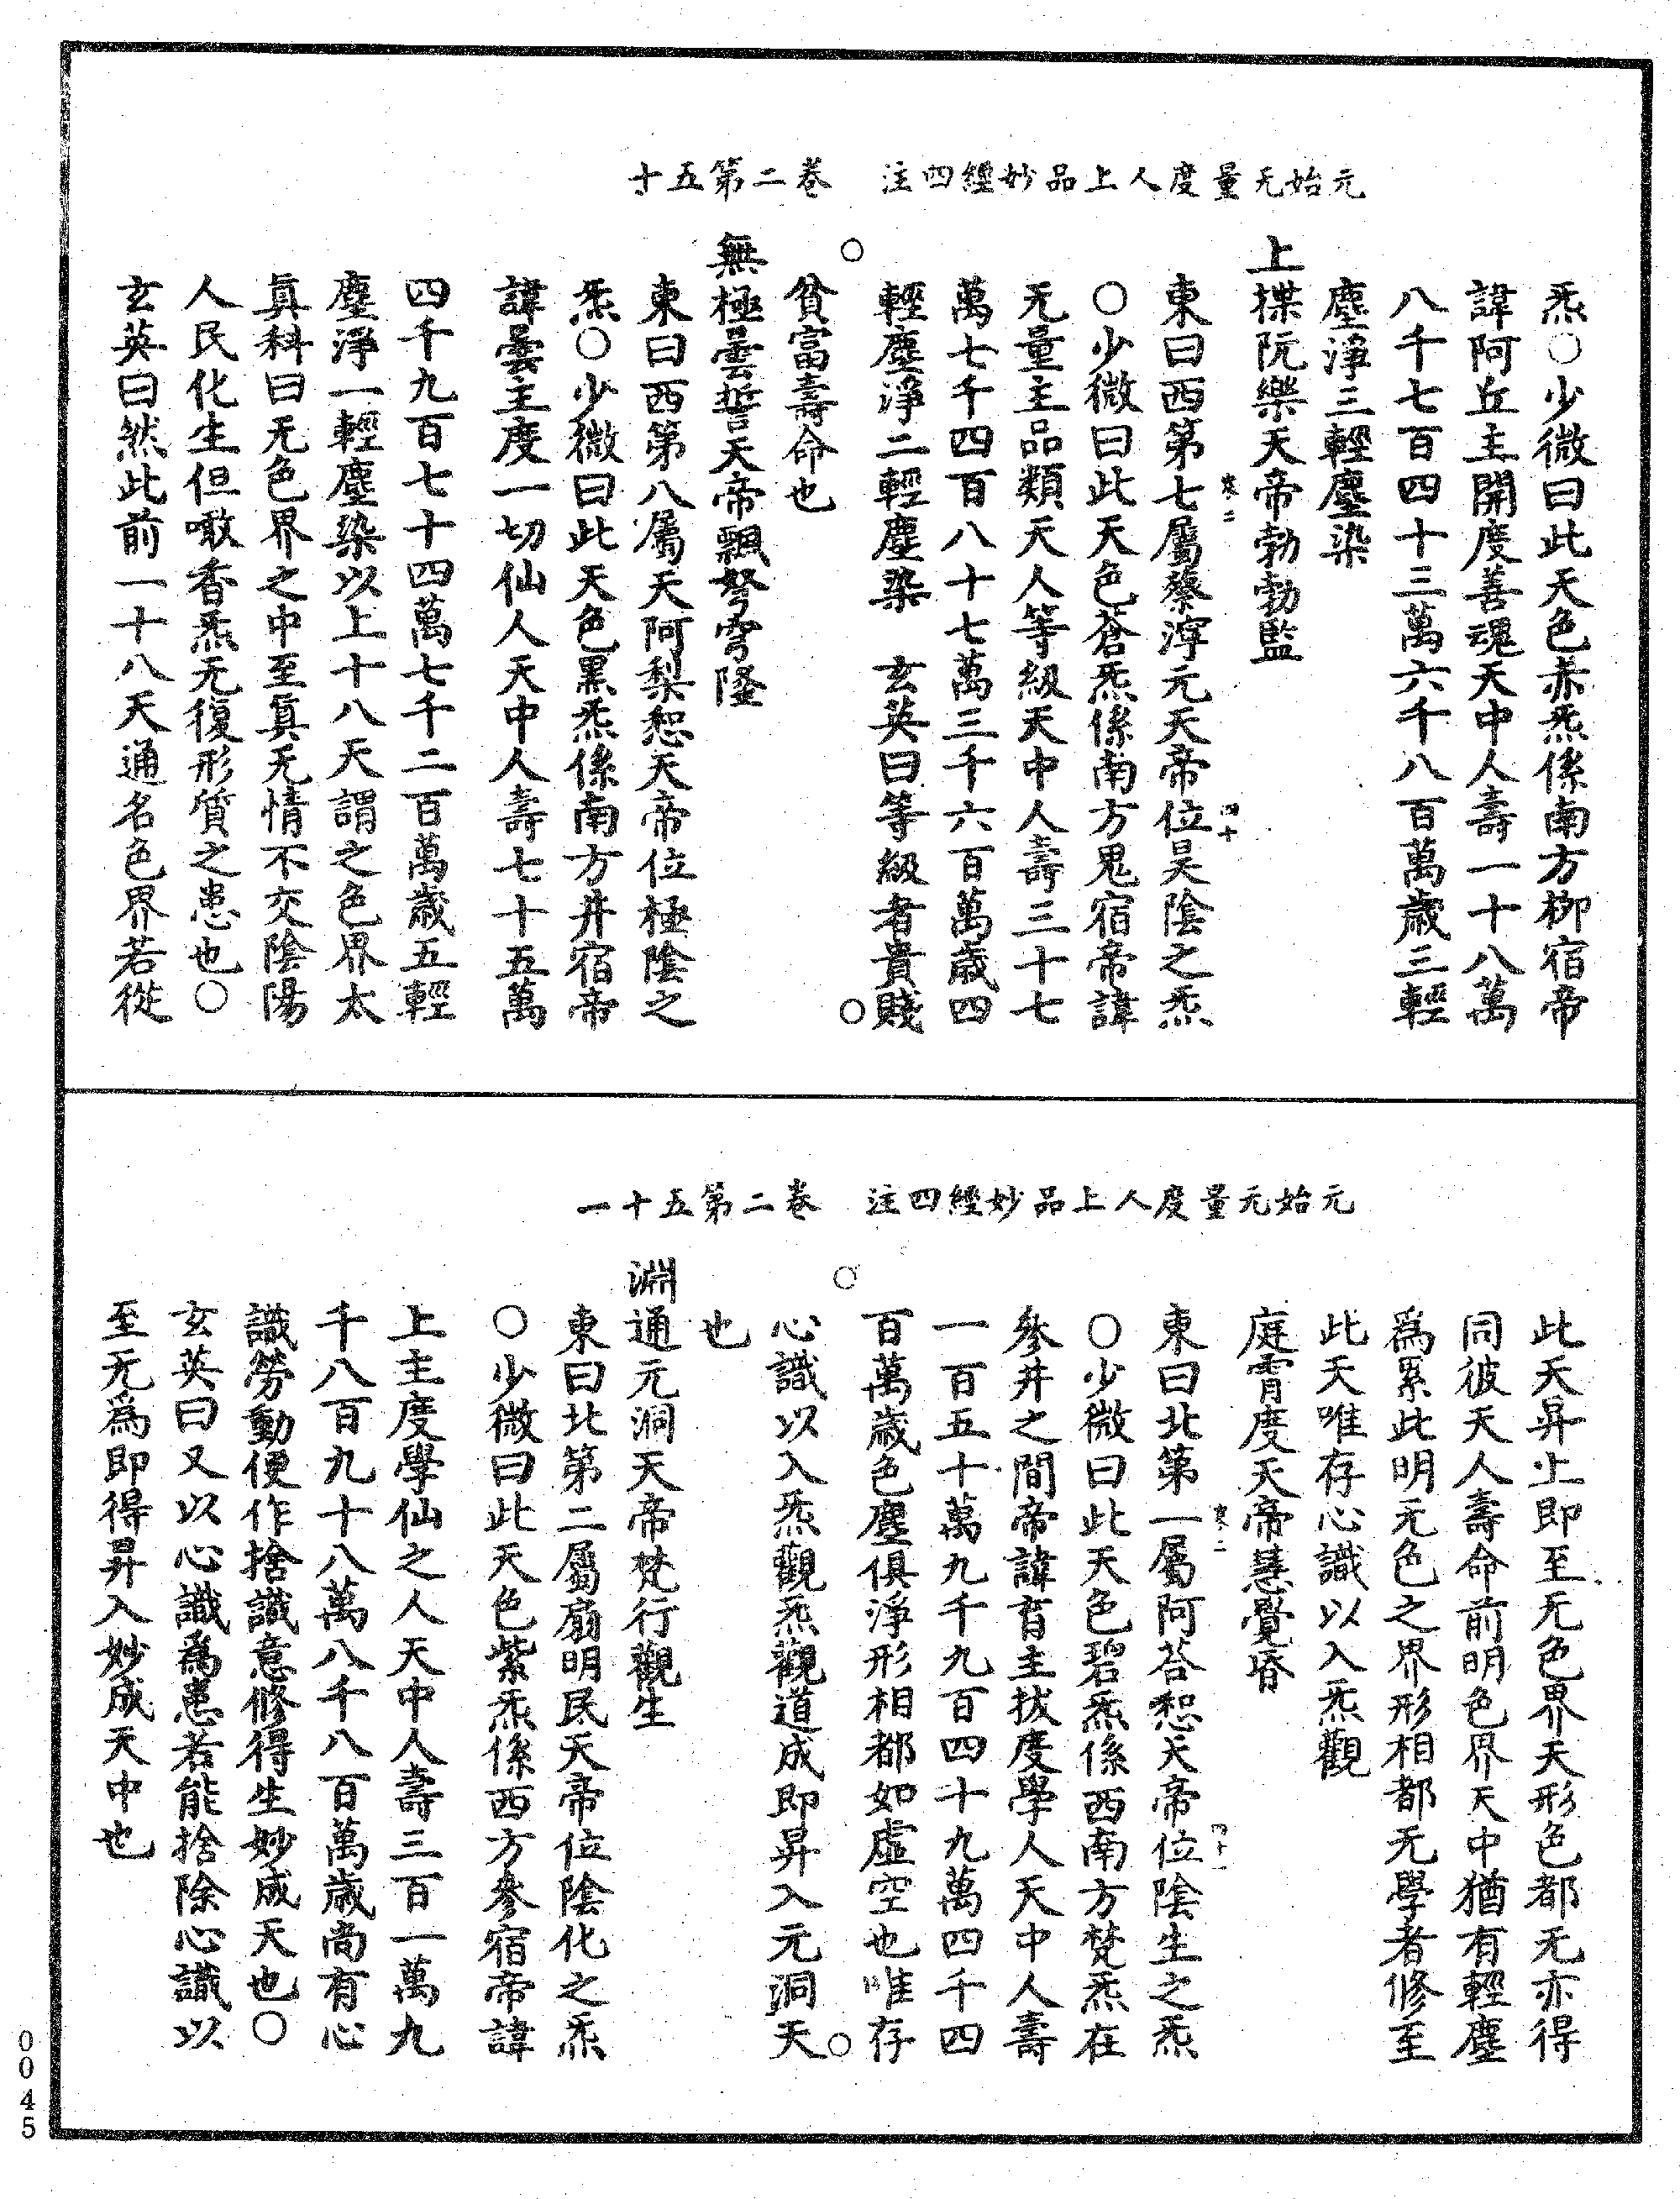 元始无量度人上品妙經四注　卷二第五十
炁○少微曰此天色赤炁係南方柳宿帝
諱阿丘主開度善魂天中人壽一十八萬
八千七百四十三萬六千八百萬歲三輕
塵淨三輕塵染
上揲阮樂天帝勃勃監
東曰西第七屬蔡㴑元天帝位昊陰之炁
○少微曰此天色蒼炁係南方鬼宿帝諱
无量主品類天人等級天中人壽三十七
萬七千四百八十七萬三千六百萬歲四
輕塵淨二輕塵染　玄英曰等級者貴賤
貧富壽命也
無極曇誓天帝飄弩穹隆
東曰西第八屬天阿梨恕天帝位極陰之
炁○少微曰此天色黑炁係南方井宿帝
諱曇主度一切仙人天中人壽七十五萬
四千九百七十四萬七千二百萬歲五輕
塵淨一輕塵染以上十八天謂之色界太
真科曰无色界之中至真无情不交陰陽
人民化生但噉香炁无復形質之患也○
玄英曰然此前一十八天通名色界若從
元始无量度人上品妙經四注　卷二第五十一
此天昇上即至无色界天形色都无亦得
同彼天人壽命前明色界天中猶有輕塵
為累此明无色之界形相都无學者修至
此天唯存心識以入炁觀
庭霄度天帝慧覺昏
東曰北第一屬阿荅恕天帝位陰生之炁
○少微曰此天色碧炁係西南方梵炁在
參井之間帝諱育主拔度學人天中人壽
一百五十萬九千九百四十九萬四千四
百萬歲色塵俱淨形相都如虛空也唯存
心識以入炁觀炁觀道成即昇入元洞天
也
淵通元洞天帝梵行觀生
東曰北第二屬扇明民天帝位陰化之炁
○少微曰此天色紫炁係西方參宿帝諱
上主度學仙之人天中人壽三百一萬九
千八百九十八萬八千八百萬歲尚有心
識勞動便作捨識意修得生妙成天也○
玄英曰又以心識為患若能捨除心識以
至无為即得昇入妙成天中也
0045